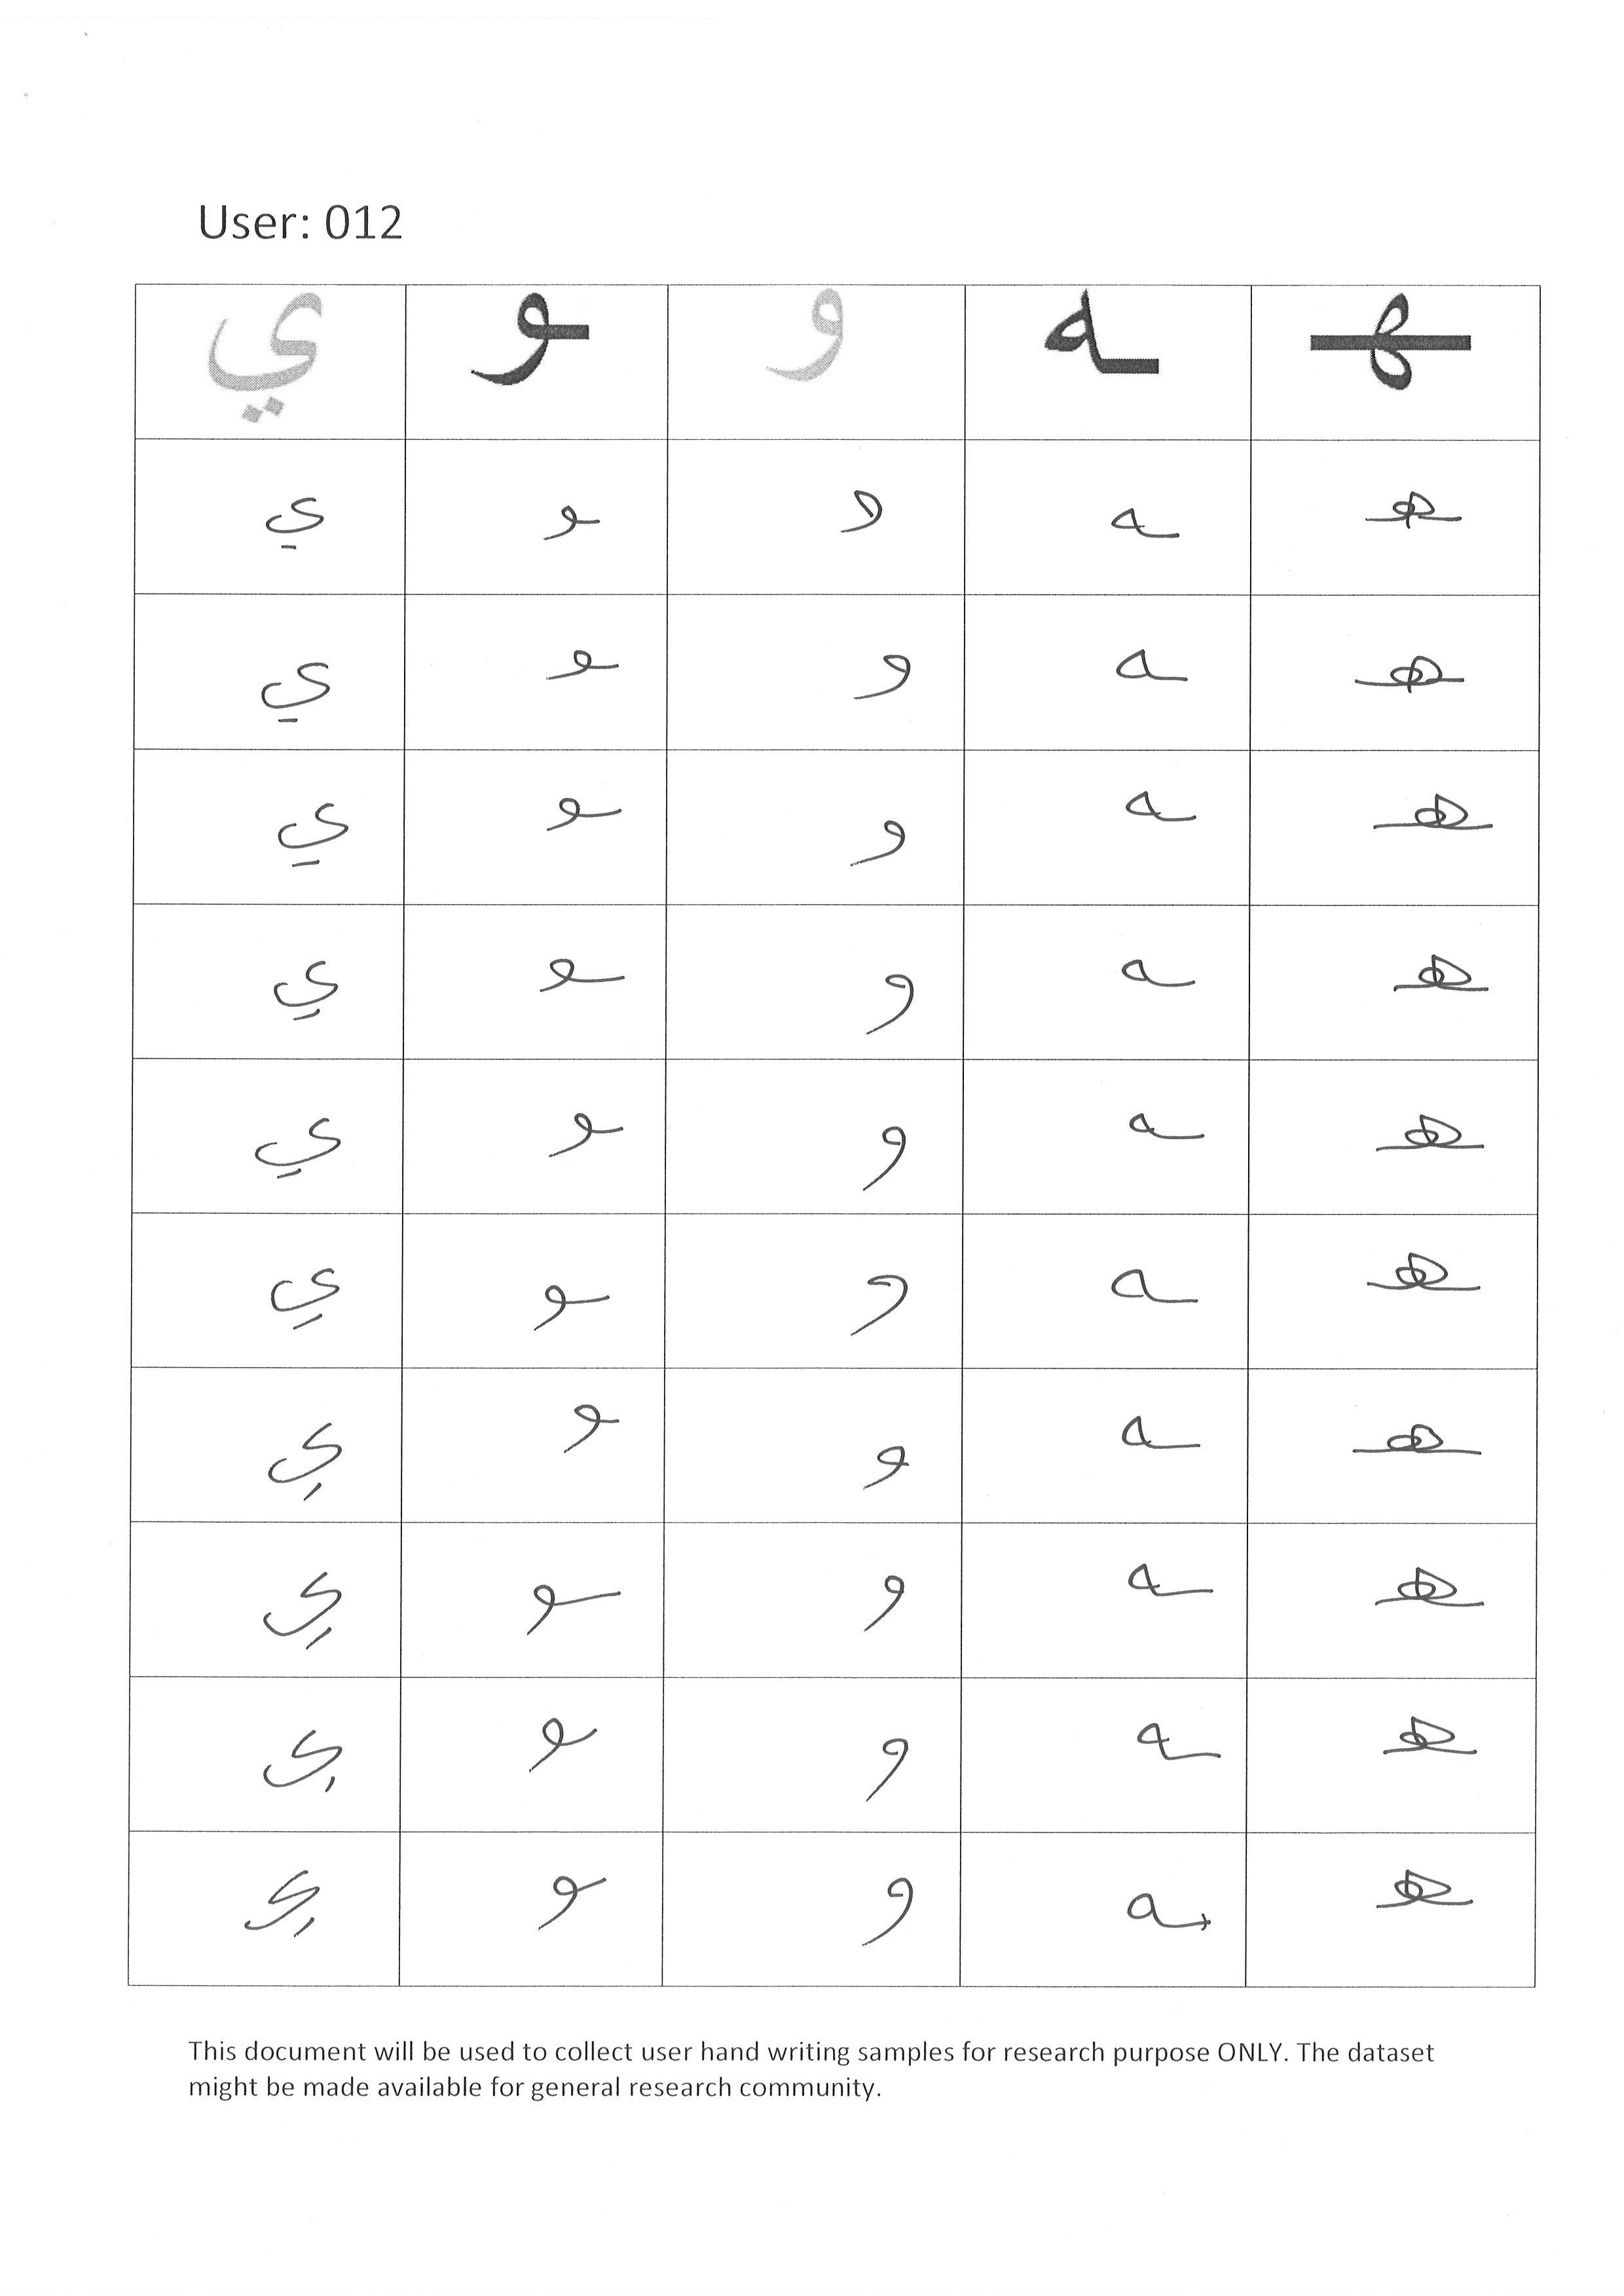 User: 012
ي ـو و ـه ـهـ
ي ـو و ـه ـهـ
ي ـو و ـه ـهـ
ي ـو و ـه ـهـ
ي ـو و ـه ـهـ
ي ـو و ـه ـهـ
ي ـو و ـه ـهـ
ي ـو و ـه ـهـ
ي ـو و ـه ـهـ
ي ـو و ـه ـهـ
ي ـو و ـه ـهـ
This document will be used to collect user hand writing samples for research purpose ONLY. The dataset
might be made available for general research community.